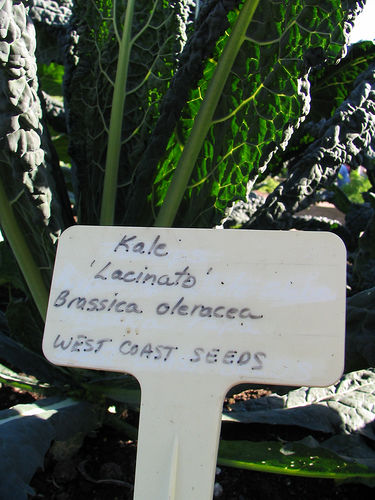 Kale
'Lacinato'
Brassica oleracea
WEST COAST SEEDS